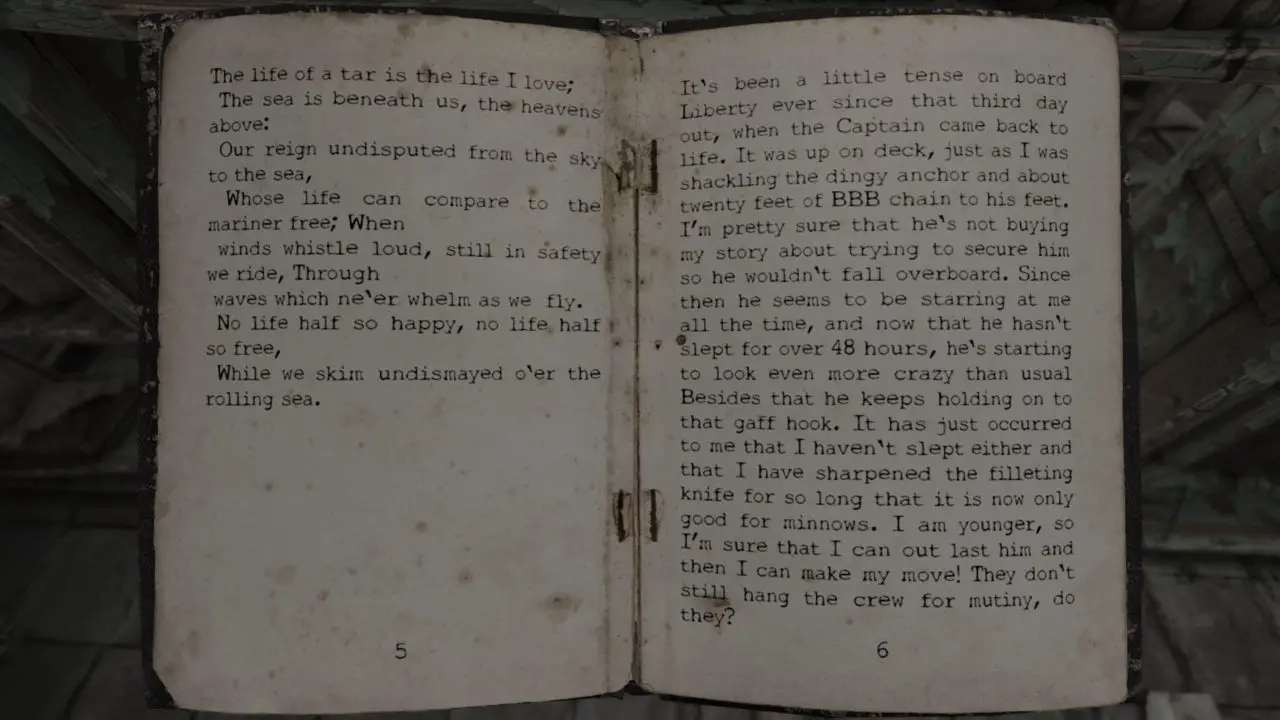 The life of a tar is the life I love;
The sea is beneath us, the heavens
above:
Our reign undisputed from the sky
to the sea,
Whose life can compare to the
mariner free; When
winds whistle loud, still in safety
we ride, Through
waves which ne'er whelm as we fly.
No life half so happy, no life half
so free,
While we skim undismayed o'er the
rolling sea.
5
It's been a little tense on board
Liberty ever since that third day
out, when the Captain came back to
life. It was up on deck, just as I was
shackling the dingy anchor and about
twenty feet of BBB chain to his feet.
I'm pretty sure that he's not buying
my story about trying to secure him
so he wouldn't fall overboard. Since
then he seems to be starring at me
all the time, and now that he hasn't
slept for over 48 hours, he's starting
to look even more crazy than usual
Besides that he keeps holding on to
that gaff hook. It has just occurred
to me that I haven't slept either and
that I have sharpened the filleting
knife for so long that it is now only
good for minnows. I am younger, so
I'm sure that I can out last him and
then I can make my move! They don't
still hang the crew for mutiny, do
they?
6